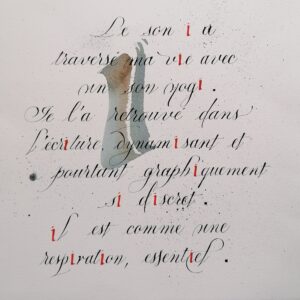 Le son i a
traverse ma vie avec
un son yogi.
Je l'a retrouve dans
l'écriture, dynamisant et
pourtant graphiquement
si discret.
il est comme une
respiration, essentiel.